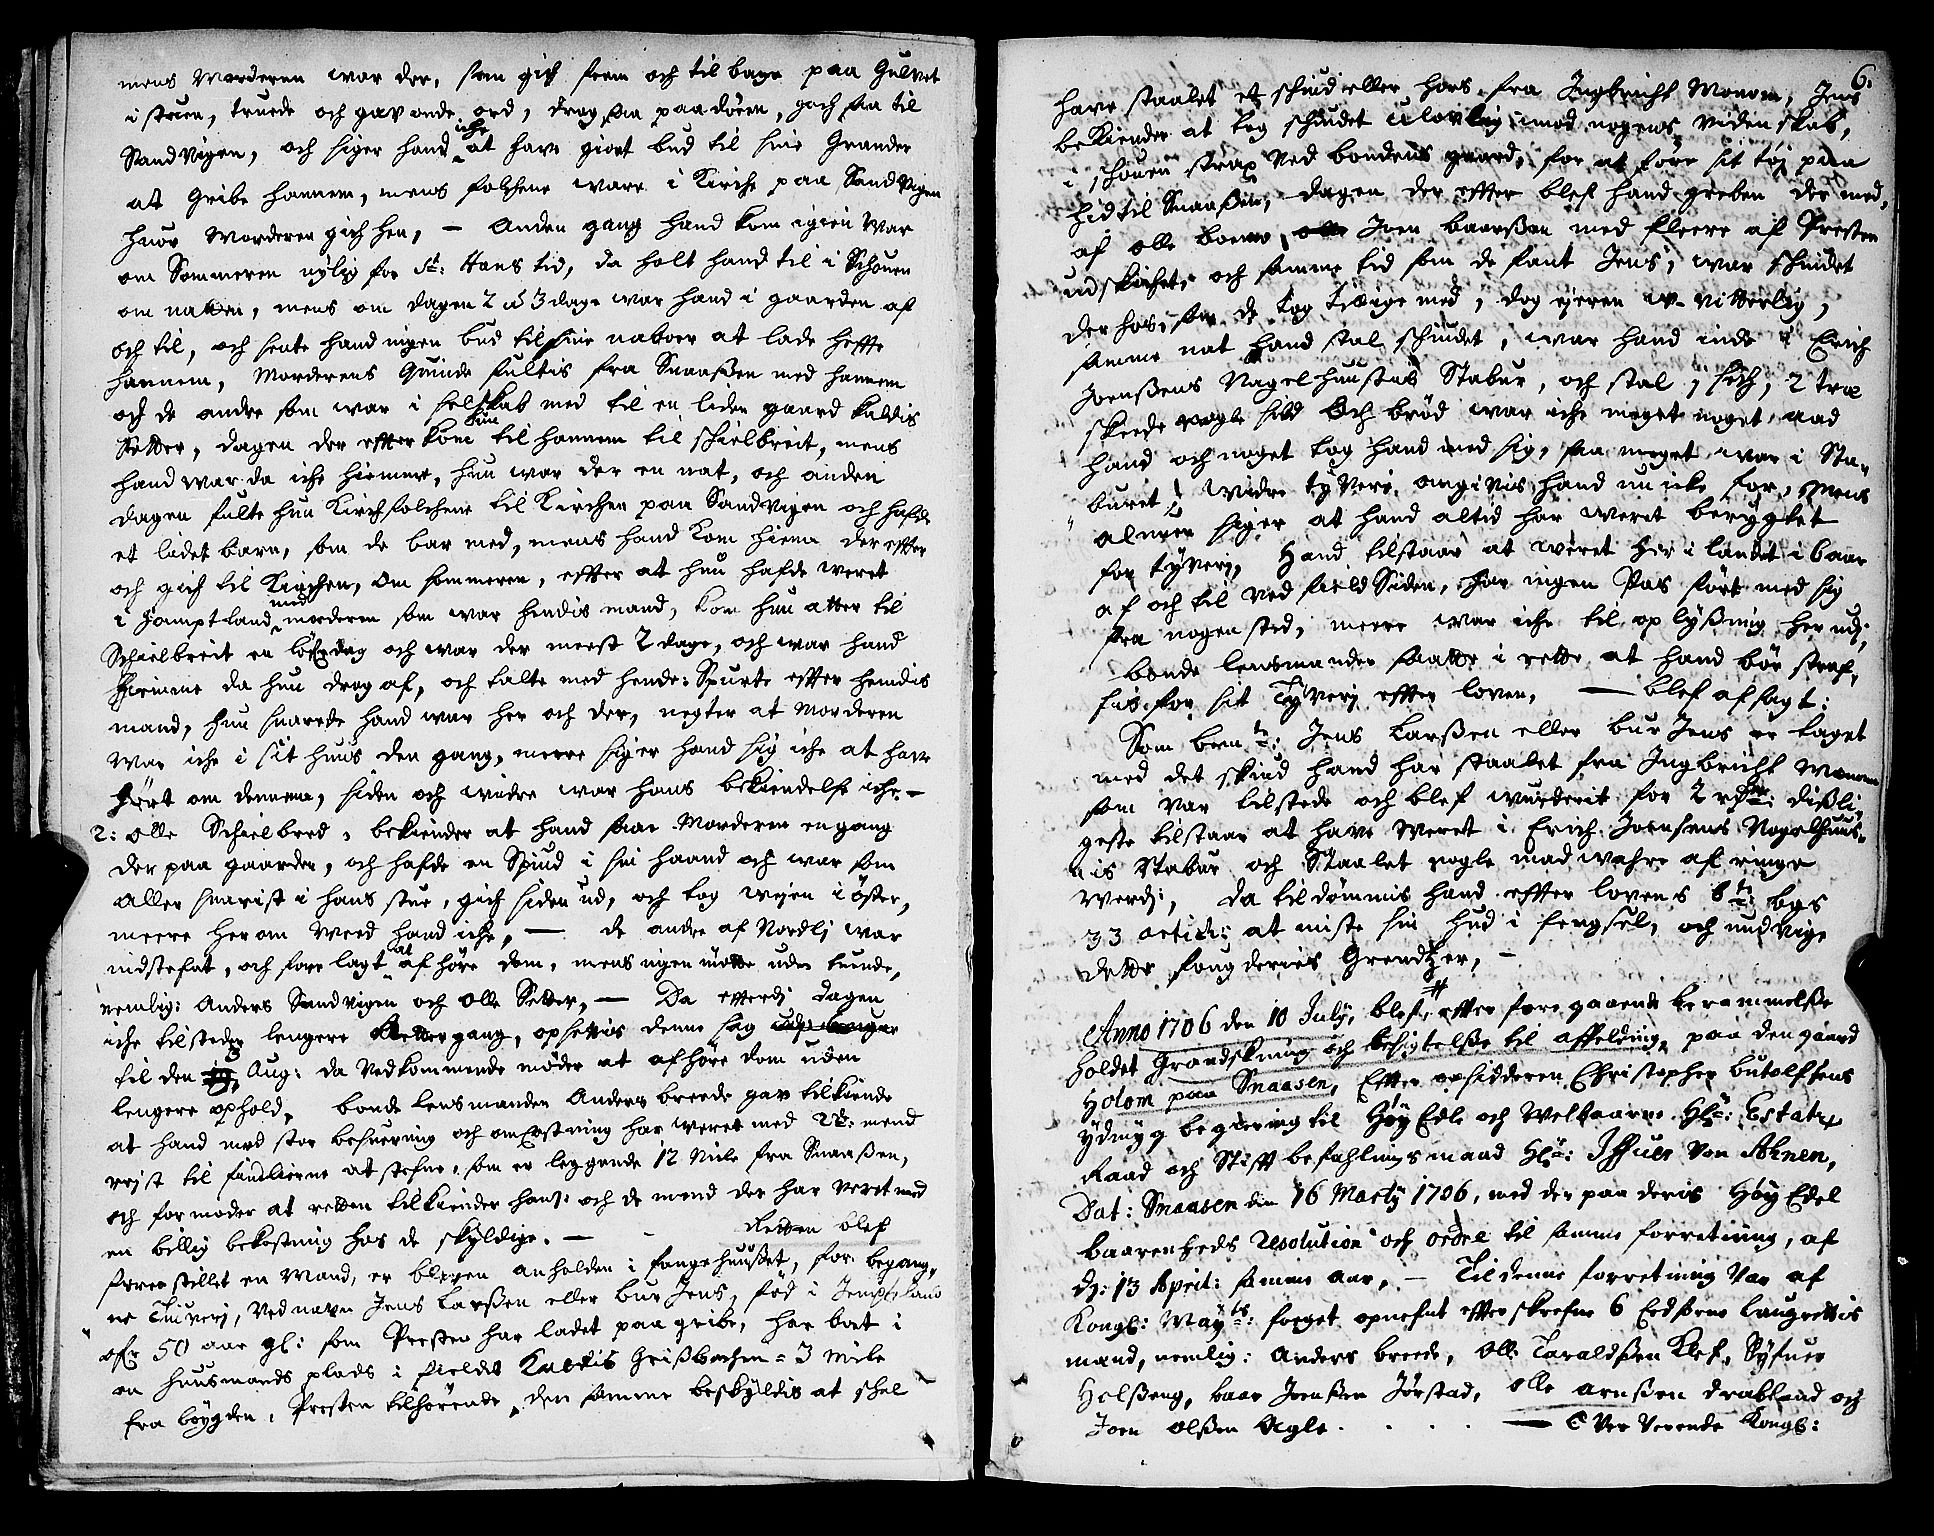 mens Morderen war der, som gich frem och tilbage paa Gulvet
i stuen, truede och gav onde ord, drog saa paa dören, gach saa til
Sandvigen, och siger hand iche at have giort bud til sine Grander
at Gribe hannem, mens folchene ware i Kirche paa Sandvigen
huor Morderen gich hen, — Anden gang hand kom igien war
om Sommeren nylig for St: Hans tid, da holt hand til i Schouen
om natten, mens om dagen 2 a 3 dage war hand i gaarden af
och til, och sente hand ingen bud til sine naboer at lade heffte
hannem, Morderens Quinde fultis fra Snaaßen med hannem
och de andre som war i selskab med til en liden gaard kaldis
Setter, dagen der effter kom hun til hannem til schielbreit, mens
hand war da iche hiemme, hun war der en nat, och anden
dagen fulte hun Kirchfolchene til Kirchen paa Sandvigen och hafde
et lidet barn, som de bar med, mens hand kom hiem der effter
och gich til Kirchen, Om sommeren, effter at hun hafde weret
i Jemptland med morderen som war hendis mand, kom hun atter til
Schielbreit en löfverdag och war der meest 2 dage, och war hand
hiemme da hun drog af, och talte med hende: Spurte effter hendis
mand, hun suarede hand war her och der, negter at Morderen
war iche i sit huus den gang, meere siger hand sig iche at have
hört om dennem, siden och widre war hans bekiendelse iche. —
2: Olle Schielbred, bekiender at hand saae Morderen en gang
der paa gaarden, och hafde en Spiud i sin haand och war som
aller snarist i hans stue, gich siden ud, och tog wejen i öster,
meere herom weed hand iche, — de andre af Nordlj war
indstefnt, och forelagt at afhöre dem, mens ingen mötte uden tuende,
nemlig: Anders Sandvigen och Olle Setter, — Da efftersom dagen
iche tilsteder lengere Rettergang, opsettis denne sag
til den Aug: da vedkommende möder at afhöre dem uden
lengere ophold, bonde lensmanden Anders breede gav tilkiende
at hand med stor besuering och omkostning har weret med mend
rejst til finlierne at stefne, som er leggende 12 Mile fra Snaaßen,
och formoder at retten tilkiender ham och de mend der har veret med
en billig bekostning hos de skyldige. — Retten blef
foreestillet en Mand, er bleven anholden i fangehuußet, for begang,
ne Tiuverj, ved navn Jens Larßen eller bur Jens, föd i Jemptland
ofr 50 aar gl: som Presten har ladet paagribe, har boet i
en huusmands plads i fieldet Kaldis Grißbachen = 3 Mile
fra böygden, Presten tilhörende, den samme beskyldis at schal
6.
have staalet et schind eller hors fra Ingbricht Monom, Jens
bekiender at tog schindet ulovlig imod nogens videnskab,
i schouen strax ved bondens gaard, for at före sit töj paa
hid til Snaaßen, dagen der effter blef hand greben der med,
af Olle Joen baarßen med fleere af Presten
udskichet, och samme tid som de fant Jens, war schindet
der hos, som de tog tillige med, dog ejeren u-vitterlig,
samme nat hand stal schindet, war hand inde i Erich
Joenßens Nagelhuustens Stabur, och stal 1 sech, 2 træ
skeede nogle sild Och bröd war iche meget noget aad
hand och noget tog hand med sig, saa meget war i Sta,
buret, widre tyveri angivis hand nu icke for, mens
almuen siger at hand altid har weret berygtet
for tyveri, Hand tilstaar at weret her i landet i 6 aar
af och til ved field Siden, har ingen Pas fört med sig
fra nogen sted, meere war iche til oplyßning herudj,
bonde lensmanden saatte i rette at hand bör straf,
fis for sit Tyveri effter loven, — blef afsagt:
Som bemte: Jens Larßen eller bur Jens er taget
med det skind hand har staalet fra Ingbricht Monom
som var tilstede och blef wurderit for 2 rdr: dißli,
geste tilstaar at have weret i Erich Joensens Nagelhuus,
nis Stabur och Staalet nogle mad wahre af ringe
werdj, da tildömmis hand effter lovens 6te: bogs
33 articl: at miste sin hud i fengsel, och undvige
dette fougderies Grendtzer, —
Anno 1706 den 10 July, blef effter foregaaende berammelße
holdet Grandskning och besigtelße til affelding, paa den gaard
Holom paa Snaasen, Effter opsidderen Christopher butolfsens
ydmyg begiering til Höy Edle och Welbaarne Hr: Estats
Raad och Stifft befahlingsmand Hr: Iffuer von Ahnen,
Dat: Snaasen den 16 Marty 1706, med der paa deris Höy Edel
baarenheds resolution och ordre til samme forretning, af
d: 13 Apreil: samme aar, — Til denne forretning var af
Kongl: Mayts: foeget opnefnt effterskrefne 6 Eedsorne laugrettis
mænd, nemlig: Anders breede, Olle Taraldßen Klef, Syfuer
Helßeng, baar Joenßen Jörstad, Olle arnßen drabland och
Joen Olßen Agle. . . . . — Over verende Kongl: